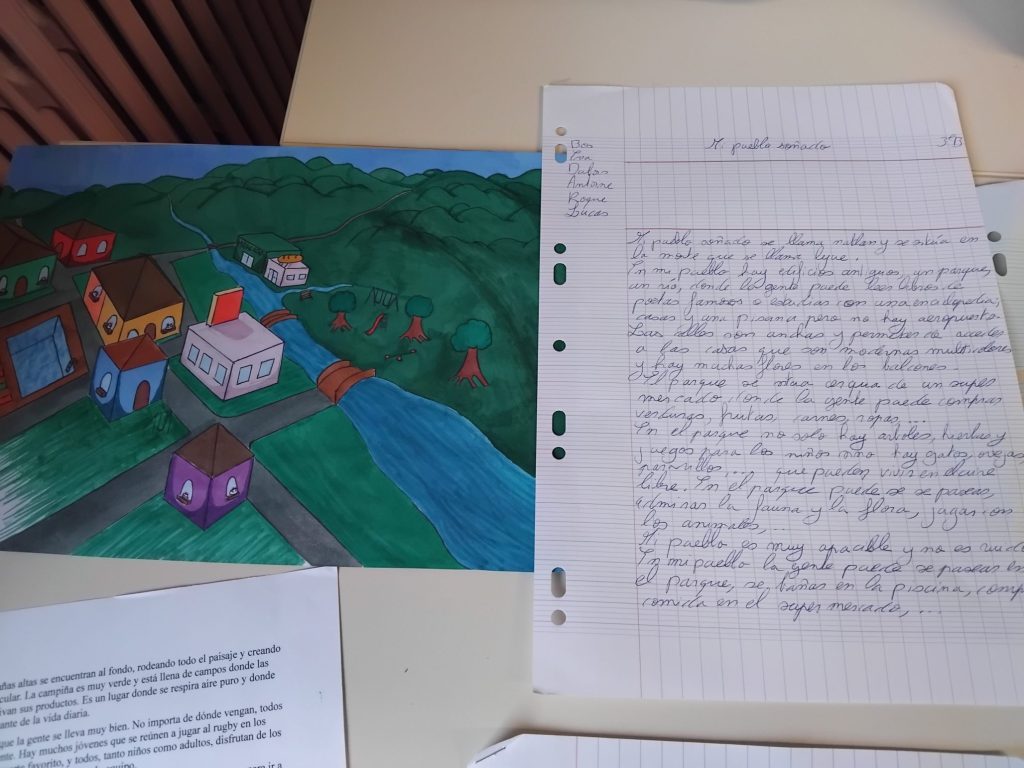 Mi pueblo soñado
3°B
Eva
Antoine
Roque
Lucas
Mi pueblo soñado se llama y se sitúa en
la norte que se llama
En mi pueblo hay edificios antiguos, un parque,
un río, donde la gente puede leer libros de
poetas famosos o estudiar con una enciclopedia,
casas y una piscina pero no hay aeropuerto.
Las calles son anchas y permiten de acceder
a las casas que son modernas multicolores
y hay muchas flores en los balcones.
El parque se situa cerqua de un super
mercado, donde la gente puede comprar
verduras, frutas, carnes, ropas, ...
En el parque no solo hay arboles, hierbas y
juegos para los niños sino hay gatos, ovejas
... que pueden vivir en el aire
libre. En el parque puede se pasear,
admirar la fauna y la flora, jugar con
los animales, ...
Mi pueblo es muy apacible y no es
En mi pueblo la gente puede se pasear en
el parque, se bañar en la piscina,
comida en el super mercado, ...
ñas altas se encuentran al fondo, rodeando todo el paisaje y creando
cular. La campiña es muy verde y está llena de campos donde las
ivan sus productos. Es un lugar donde se respira aire puro y donde
ante de la vida diaria.
que la gente se lleva muy bien. No importa de dónde vengan, todos
nte. Hay muchos jóvenes que se reúnen a jugar al rugby en los
favorito, y todos, tanto niños como adultos, disfrutan de los